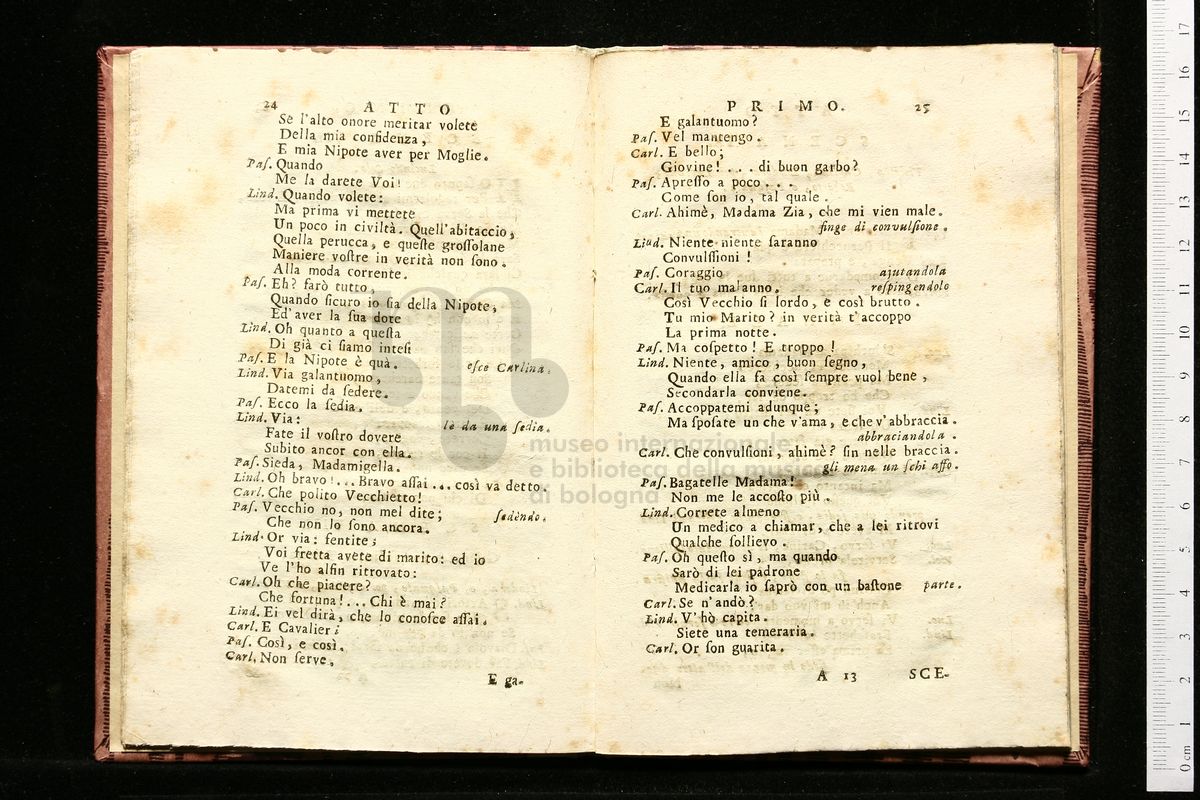 24 ATTO
Se l'alto onore meritar volete
Della mia confidenza,
E mia Nipote aver per Moglie.
Paſ. Quando
Me la darete Voi!
Lind. Quando volete:
Ma prima vi mettete
Un poco in civiltà. Quell'abitaccio,
Quella perucca, e queſte groſſolane
Maniere voſtre in verità non ſono.
Alla moda corrente.
Paſ. Eh? farò tutto,
Quando ſicuro io ſia della Nipote,
Ed'aver la ſua dote
Lind. Oh quanto a queſta
Di già ci ſiamo inteſi
Paſ. E la Nipote è quà. eſce Carlina.
Lind. Via galantuomo,
Datemi da ſedere.
Paſ. Ecco la ſedia.
Lind. Via: le da una ſedia.
Fate il voſtro dovere
Subito ancor con ella.
Paſ. Sieda, Madamigella.
Lind. Oh bravo!... Bravo aſſai... così va detto.
Carl. Che polito Vecchietto!
Paſ. Vecchio no, non mel dite; ſedendo.
Che non lo ſono ancora.
Lind. Or via: ſentite;
Voi fretta avete di marito: ed io
Ve l'ho alfin ritrovato:
Carl. Oh che piacere?
Che fortuna!... Chi è mai?
Lind. Ei vel dirà, che lo conoſce aſſai.
Carl. E Cavalier;
Paſ. Così, e così.
Carl. Non ſerve,
E ga-
PRIMO. 25
E galantuomo?
Paſ. Vel mantengo.
Carl. E bello;
Giovine!... di buon garbo?
Paſ. Apreſſo a poco...
Come ſon io, tal quale.
Carl. Ahimè, Madama Zia, che mi vien male.
finge di convulſione.
Liud. Niente niente ſaranno
Convulſſioni!
Paſ. Coraggio ajutandola
Carl. Il tuo malanno. reſpingendolo
Così Vecchio ſi lordo, e così brutto.
Tu mio Marito? in verità t'accoppo
La prima notte.
Paſ. Ma coſpetto! E troppo!
Lind. Niente, amico, buon ſegno,
Quando ella fa così ſempre vuol bene,
Secondarla conviene.
Paſ. Accoppatemi adunque;
Ma ſpoſate un che v'ama, e che v'abbraccia.
abbraciandola.
Carl. Che convulſioni, ahimè? ſin nelle braccia.
gli mena un ſchi affo.
Paſ. Bagatelle Madama!
Non me le accoſto più.
Lind. Correte almeno
Un medico a chiamar, che a lei ritrovi
Qualche ſollievo.
Paſ. Oh queſto sì, ma quando
Sarò di lei padrone
Medicarla io ſaprò con un baſtone parte.
Carl. Se n'andò?
Lind. V'hò capita.
Siete una temeraria.
Carl. Or ſon guarita.
A 13 SCE-
museo internazionale
e biblioteca della musica
di bologna
0 cm 1 2 3 4 5 6 7 8 9 10 11 12 13 14 15 16 17